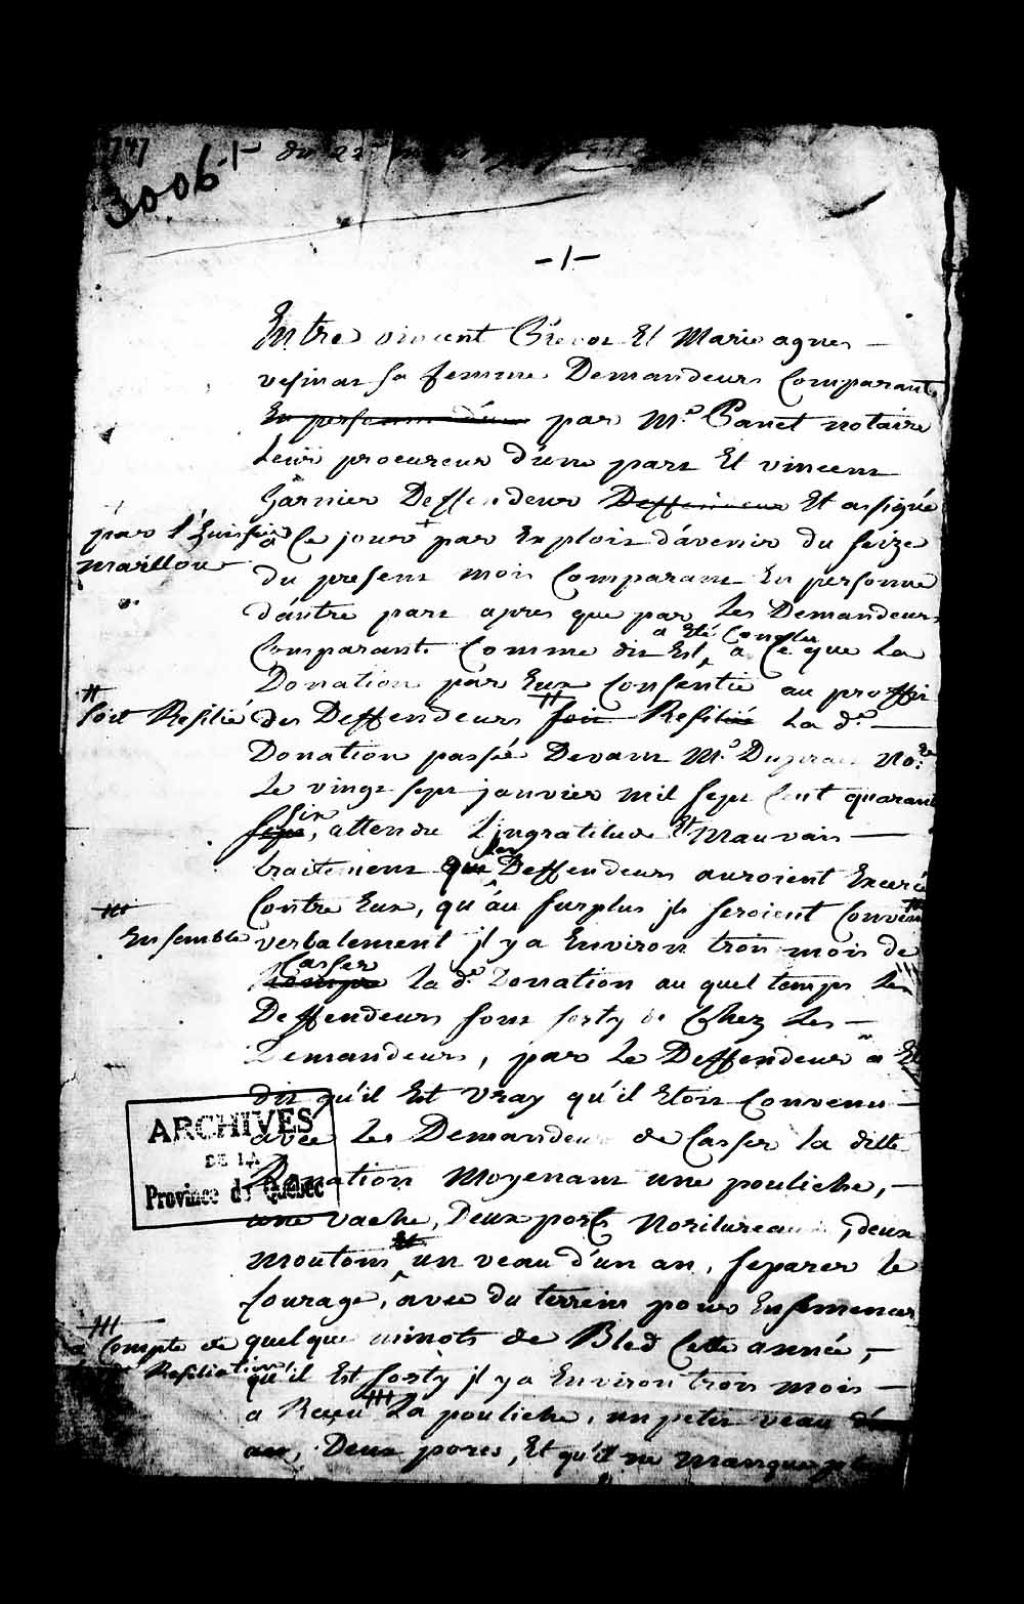 747
3006 -1-
du 22
-1-
Entre vincent Et Marie agnes —
vesinat sa femme Demandeurs Comparants
par Me. Panet notaire
Leur procureur d'une part Et vincent
Garnier Deffendeur Deffendeur Et assigné
par l'huissier
maillou
a Ce jour + par Exploit d'avenir du seize
du present mois Comparant En personne
d'autre part apres que par Les Demandeurs
a Eté Conclu
Comparants Comme dit Est, a Ce que La
Donation par Eux Consentie au proffit
soit Resilié
des Deffendeurs soit Resilié La de. —
Donation passée Devant Me. No.re
Le vingt sept janvier mil sept Cent quarante
six
sept, attendu L'ingratitude Et Mauvais —
les
traitement que Deffendeurs auroient Exercé
Contre Eux, qu'au surplus ils seroient Convenu
Ensemble
verbalement il y a Environ trois mois de
Casser
Rompre la de. Donation au quel temps Les
Deffendeurs sont sorty de Chez Les —
Demandeurs, par Le Deffendeur a Eté
dit qu'il Est vray qu'il Etoit Convenu —
avec Les Demandeurs de Casser la ditte
Donation Moyenant une pouliche, —
une vache, Deux porcs Noritureaux, deux
moutons Et un veau d'un an, separer le
fourage, avec du terrein pour Ensemencer
a Compte de
Resiliation
quelque minots de Bled Cette année, —
qu'il Est sorty il y a Environ trois mois —
a Reçu La pouliche, un petit veau d'un
an, Deux porcs, Et qu'il ne manque
ARCHIVES
DE LA
Province de Québec